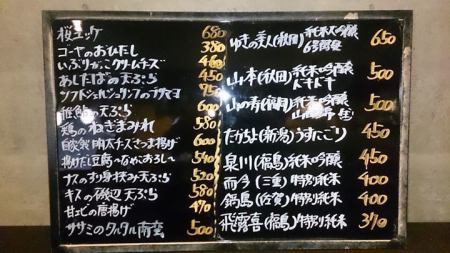 桜ユッケ 680
ゴーヤのおひたし 380
いぶりがっこクリームチーズ 460
あしたばの天ぷら 450
ソフトシェルシュリンプのチリマヨ 950
稚鮎の天ぷら 600
鶏のねぎまみれ 580
自家製 明太チーズさつま揚げ 600
揚げだし豆腐 なめこおろし 540
ナスのすり身挟み天ぷら 520
キスの磯辺天ぷら 580
甘エビの唐揚げ 470
ササミのタルタル南蛮 500
ゆきの美人(秋田)純米大吟醸 6号酵母 650
山本(秋田)純米吟醸 ドキドキ 500
山の寿(福岡)純米吟醸 500
たかちよ(新潟)うすにごり 450
泉川(福島)純米吟醸 450
而今(三重)特別純米 400
鍋島(佐賀)特別純米 400
飛露喜(福島)特別純米 370